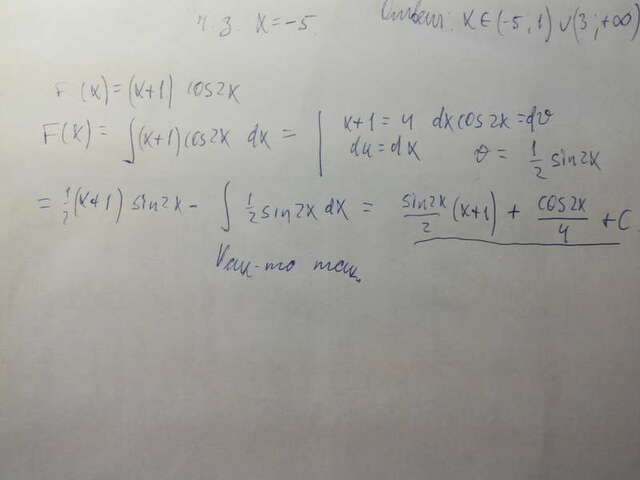 ч. з. x = -5. Ответ: x ∈ (-5, 1) ∪ (3; +∞)
F(x) = (x+1) cos2x
F(x) = ∫(x+1)cos2x dx = | x+1 = u dxcos2x = dv
du = dx v = 1/2 sin2x
= 1/2(x+1) sin2x - ∫ 1/2 sin2x dx = sin2x/2 (x+1) + cos2x/4 + C.
Как-то так.